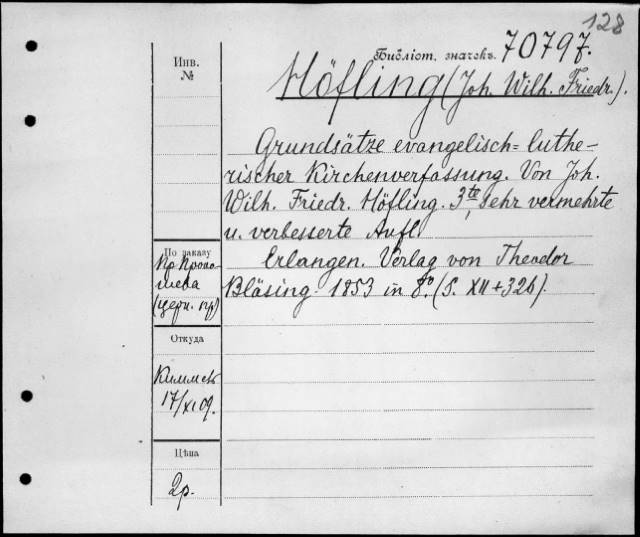 128
Инв.
№
Библіот. значекъ. 70797.
Höfling (Joh. Wilh. Friedr.).
Grundsätze evangelisch=luthe-
rischer Kirchenverfassung. Von Joh.
Wilh. Friedr. Höfling. 3te, sehr vermehrte
u. verbesserte Aufl.
Erlangen. Verlag von Theodor
Bläsing. 1853 in 8°. (S. XII + 326).
По заказу
(церк. пр)
Откуда
17/XI 09.
Цѣна
2р.